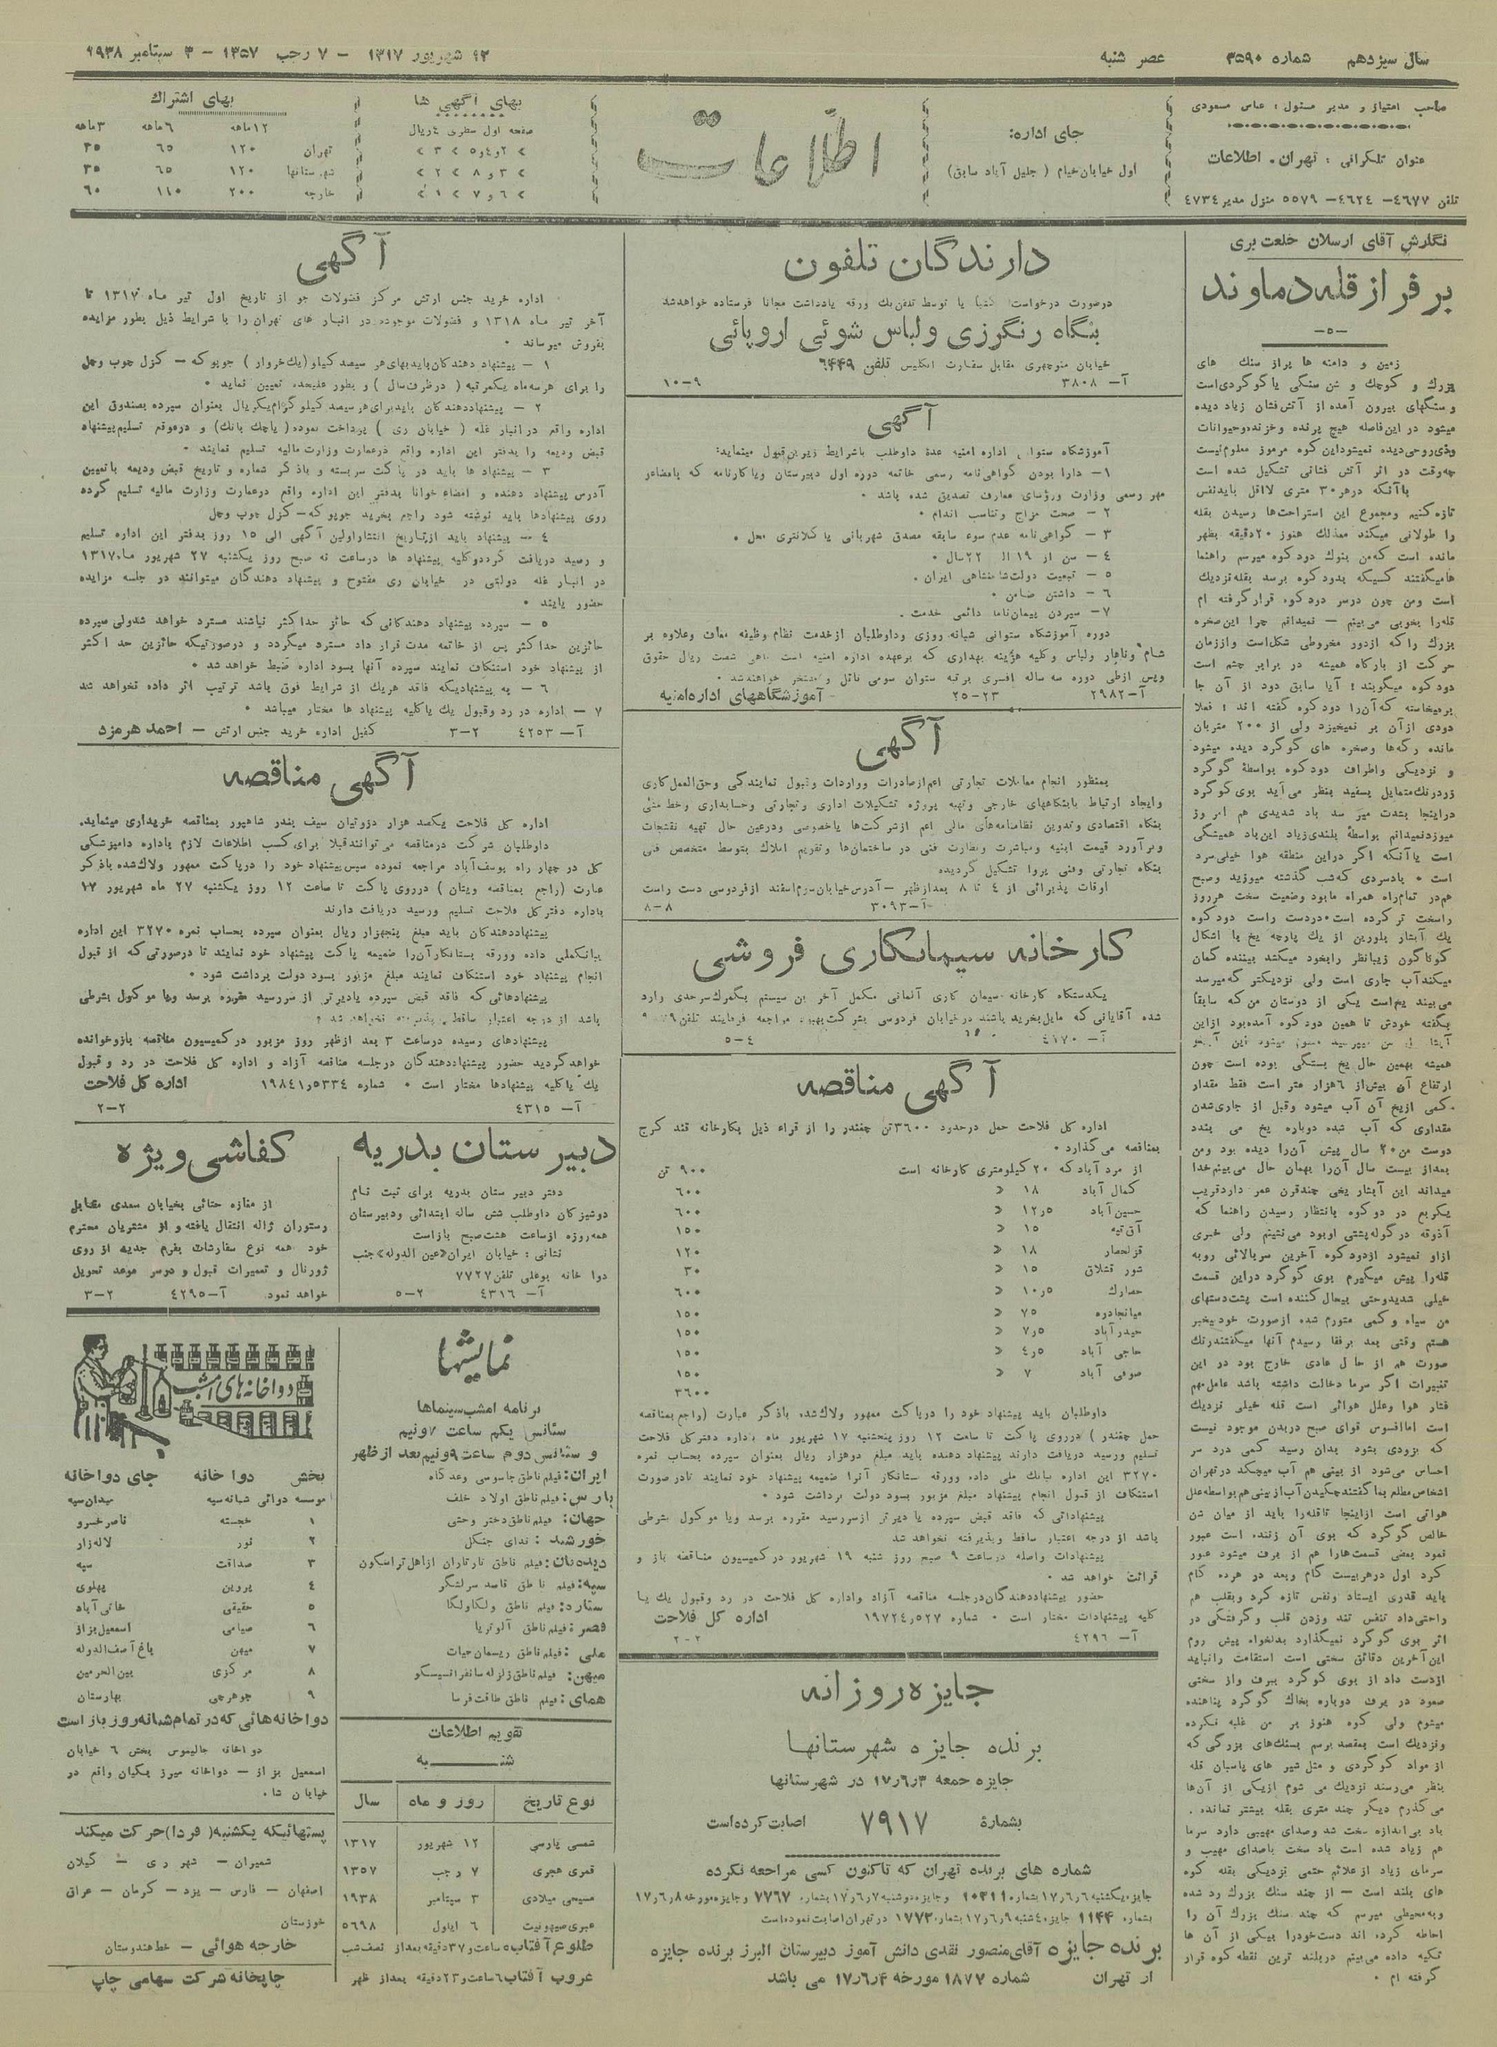 سال سیزدهم شماره ۳۵۹۰ عصر شنبه ۱۲ شهریور ۱۳۱۷ – ۷ رجب ۱۳۵۷ – ۳ سپتامبر ۱۹۳۸
صاحب امتیاز و مدیر مسئول : عباس مسعودی
عنوان تلگرافی : تهران. اطلاعات
تلفن ۴۶۷۷– ۴۶۲۴– ۵۵۷۹ منزل مدیر ۴۷۳۴
جای اداره:
اول خیابان خیام ( جلیل آباد سابق)
اطلاعات
بهای آگهی ها
صفحه اول سطری ۴ ریال
بهای اشتراك
۱۲ماهه ۶ماهه ۳ماهه
تهران ۱۲۰ ۶۵ ۳۵
شهرستانها ۱۲۰ ۶۵ ۳۵
خارجه ۲۰۰ ۱۱۰ ۶۰
نگارش آقای ارسلان خلعت بری
بر فراز قله دماوند
–۵–
زمین و دامنه ها پراز سنك های
بزرك و كوچك و شن سنگی یا گوگردی است
و سنگهای بیرون آمده از آتش فشان زیاد دیده
میشود در این فاصله هیچ پرنده و خزنده و حیوانات
وذی روحی دیده نمیشود این کوه مرموز معلوم نیست
چه وقت در اثر آتش فشانی تشکیل شده است
باآنکه در هر ۳۰ متری لااقل باید نفس
تازه کنیم و مجموع این استراحت‌ها رسیدن بقله
را طولانی میکند معذلك هنوز ۲۰ دقیقه بظهر
مانده است که من بنوك دود کوه میرسم راهنما
هامیگفتند کسیکه بدود کوه برسد بقله نزدیك
است ومن چون در سر دود کوه قرار گرفته ام
قله را بخوبی می بینم – نمیدانم چرا این صخره
بزرك را که از دور مخروطی شکل است و از زمان
حرکت از بارگاه همیشه در برابر چشم است
دود کوه میگویند ؛ آیا سابق دود از آن جا
برمیخاسته که آن را دود کوه گفته اند ؛ فعلا
دودی از آن بر نمیخیزد ولی از ۲۰۰ متر بان
مانده رگه‌ها وصخره های گوگرد دیده میشود
و نزدیکی واطراف دود کوه بواسطهٔ گوگرد
زرد رنك متمایل بسفید بنظر می آید بوی گوگرد
دراینجا بشدت میرسد باد شدیدی هم امروز
میوزد نمیدانم بواسطهٔ بلندی زیاد این باد همیشگی
است یا آنکه اگر در این منطقه هوا خیلی سرد
است • بادسردی که شب گذشته میوزید وصبح
هم در تمام راه همراه ما بود وضعیت سخت هر روز
راسخت تر کرده است • در دست راست دود کوه
یك آبشار بلورین از یك پارچه یخ با اشکال
گوناگون زیبا نظر را بخود میکشد بیننده گمان
میکند آب جاری است ولی نزدیکتر که میرسد
می بیند یخ است یکی از دوستان من که سابقا
بگفته خودش تا همین دود کوه آمده بود از این
همیشه بهمین حال یخ بستگی بوده است چون
ارتفاع آن بیش از ۶ هزار متر است فقط مقدار
کمی از یخ آن آب میشود وقبل از جاری شدن
مقداری که آب شده دوباره یخ می بندد
دوست من ۲۰ سال پیش آن را دیده بود ومن
بعد از بیست سال آن را بهمان حال می بینم خدا
میداند این آبشار یخی چند قرن عمر دارد قریب
یکربع در دو کوه بانتظار رسیدن راهنما که
آذوقه در کوله پشتی او بود می نشینم ولی خبری
از او نمیشود از دود کوه آخرین سربالائی روبه
قله را پیش میگیرم بوی گوگرد در این قسمت
خیلی شدید وحتی بیحال کننده است پشت دستهای
من سیاه و کمی متورم شده از صورت خود بیخبر
هستم وقتی بعد برفقا رسیدم آنها میگفتند رنك
صورت هم از حال عادی خارج بود در این
تغییرات اگر سرما دخالت داشته باشد عامل مهم
فشار هوا وعلل هوائی است قله خیلی نزدیك
است اما افسوس قوای صبح در بدن موجود نیست
که بزودی بشود بدان رسید کمی درد سر
احساس می شود از بینی هم آب میچکد در تهران
اشخاص مطلع بما گفتند چکیدن آب از بینی هم بواسطه علل
هوائی است از اینجا تا قله را باید از میان شن
خالص گوگرد که بوی آن زننده است عبور
نمود بعضی قسمت‌ها را هم از برف میشود عبور
کرد اول در هر بیست گام وبعد در هر ده گام
باید قدری ایستاد ونفس تازه کرد و بقلب هم
راحتی داد تنفس تند وزدن قلب و گرفتگی در
اثر بوی گوگرد نمیگذارد بدلخواه پیش روم
این آخرین دقائق سختی است استقامت را نباید
از دست داد از بوی گوگرد ببرف واز سختی
صعود در برف دوباره بخاك گوگرد پناهنده
میشوم ولی کوه هنوز بر من غلبه نکرده
ونزدیك است بمقصد برسم بسنك‌های بزرگی که
از مواد گوگردی و مثل شیر های پاسبان قله
بنظر می رسند نزدیك می شوم از یکی از آن‌ها
می گذرم دیگر چند متری بقله بیشتر نمانده .
باد بی اندازه سخت شد وصدای مهیبی دارد سرما
هم زیاد شده است باد سخت باصدای مهیب و
سرمای زیاد از علائم حتمی نزدیکی بقله کوه
های بلند است – از چند سنك بزرك رد شده
وبه محیطی میرسم که چند سنك بزرك آن را
احاطه کرده اند دست خود را بیکی از آن ها
تکیه داده می بینم در بلند ترین نقطه کوه قرار
گرفته ام •
دارندگان تلفون
در صورت درخواست کتبا یا توسط تلفن یك ورقه یادداشت مجانا فرستاده خواهد شد
بنگاه رنگرزی و لباس شوئی اروپائی
خیابان منوچهری مقابل سفارت انگلیس تلفن ۶۴۴۹
آ– ۳۸۰۸ ۹–۱۰
آگهی
آموزشگاه ستوانی اداره امنیه عدهٔ داوطلب باشرایط زیرین قبول مینماید:
۱– دارا بودن گواهی نامه رسمی خاتمه دوره اول دبیرستان ویا کارنامه که بامضاء و
مهر رسمی وزارت ورؤسای معارف تصدیق شده باشد •
۲ – صحت مزاج وتناسب اندام •
۳ – گواهی نامه عدم سوء سابقه مصدق شهربانی یا کلانتری محل •
۴ – سن از ۱۹ الی ۲۲ سال •
۵ – تبعیت دولت شاهنشاهی ایران .
۶ – داشتن ضامن •
۷– سپردن پیمان نامه دائمی خدمت .
دوره آموزشگاه ستوانی شبانه روزی وداوطلبان از خدمت نظام وظیفه معاف وعلاوه بر
شام وناهار ولباس و کلیه هزینه بهداری که برعهده اداره امنیه است ماهی شصت ریال حقوق
وپس از طی دوره سه ساله افسری برتبه ستوان سومی نائل و مفتخر خواهند شد •
آ–۲۹۸۲ ۲۳–۲۵ آموزشگاههای اداره امنیه
آگهی
بمنظور انجام معاملات تجارتی اعم از صادرات وواردات وقبول نمایندگی وحق العمل کاری
وایجاد ارتباط بابنگاههای خارجی وتهیه پروژه تشکیلات اداری وتجارتی وحسابداری وخط مشی
بنگاه اقتصادی وتدوین نظامنامه‌های مالی اعم از شرکت‌ها یا خصوصی ودر عین حال تهیه نقشجات
وبرآورد قیمت ابنیه ومباشرت ونظارت فنی در ساختمان‌ها وتقویم املاك بتوسط متخصص فنی
بنگاه تجارتی وفنی پروا تشکیل گردیده
اوقات پذیرائی از ۴ تا ۸ بعد از ظهر – آدرس خیابان سوم اسفند از فردوسی دست راست
آ–۳۰۹۳ ۸–۸
کارخانه سیمانکاری فروشی
یکدستگاه کارخانه سیمان کاری آلمانی مکمل آخرین سیستم بگمرك سرحدی وارد
شده آقایانی که مایل بخرید باشند در خیابان فردوسی بشرکت بهبود مراجعه فرمایند
آ– ۴۱۷۰ ۴–۵
آگهی مناقصه
اداره کل فلاحت حمل در حدود ۳۶۰۰ تن چغندر را از قراء ذیل بکارخانه قند کرج
بمناقصه می گذارد •
از مرد آباد که ۲۰ کیلومتری کارخانه است ۹۰۰ تن
کمال آباد ۱۸ » ۶۰۰
حسین آباد ۱۲٫۵ » ۶۰۰
آق تپه ۱۵ » ۱۵۰
قزلحصار ۱۸ » ۱۲۰
شور قشلاق ۱۵ » ۳۰
حصارك ۱۰٫۵ » ۶۰۰
میانجاده ۷۵ » ۱۵۰
حیدر آباد ۷٫۵ » ۱۵۰
حاجی آباد ۴٫۵ » ۱۵۰
صوفی آباد ۷ » ۱۵۰
۳۶۰۰
داوطلبان باید پیشنهاد خود را در پاکت ممهور ولاك شده باذکر عبارت (راجع بمناقصه
حمل چغندر ) در روی پاکت تا ساعت ۱۲ روز پنجشنبه ۱۷ شهریور ماه باداره دفتر کل فلاحت
تسلیم ورسید دریافت دارند پیشنهاد دهنده باید مبلغ دو هزار ریال بعنوان سپرده بحساب نمره
۳۲۷۰ این اداره ببانك ملی داده وورقه ستانکار آنرا ضمیمه پیشنهاد خود نمایند تا در صورت
استنکاف از قبول انجام پیشنهاد مبلغ مزبور بسود دولت برداشت شود •
پیشنهاداتی که فاقد قبض سپرده یا دیرتر از سر رسید مقرره برسد ویا موکول بشرطی
باشد از درجه اعتبار ساقط وپذیرفته نخواهد شد
پیشنهادات واصله در ساعت ۹ صبح روز شنبه ۱۹ شهریور در کمیسیون مناقصه باز و
قرائت خواهد شد •
حضور پیشنهاد دهندگان در جلسه مناقصه آزاد واداره کل فلاحت در رد وقبول یك یا
کلیه پیشنهادات مختار است • شماره ۱۹۷۲۴٫۵۲۷ اداره کل فلاحت
آ– ۴۲۹۶ ۲–۲
جایزه روزانه
برنده جایزه شهرستانها
جایزه جمعه ۱۷٫۶٫۳ در شهرستانها
بشمارهٔ ۷۹۱۷ اصابت کرده است
شماره های برنده تهران که تاکنون کسی مراجعه نکرده
جایزه یکشنبه ۱۷٫۶٫۶ بشماره ۱۰۳۱۱ وجایزه دوشنبه ۱۷٫۶٫۷ بشماره ۷۷۶۷ وجایزه مورخه ۱۷٫۶٫۸
بشماره ۱۱۴۴ جایزه ۴ شنبه ۱۷٫۶٫۹ بشماره ۱۷۷۲ در تهران اصابت نموده است
برنده جایزه آقای منصور نقدی دانش آموز دبیرستان البرز برنده جایزه
از تهران شماره ۱۸۷۷ مورخه ۱۷٫۶٫۴ می باشد
آگهی
اداره خرید جنس ارتش مرکز فضولات جو از تاریخ اول تیر ماه ۱۳۱۷ تا
آخر تیر ماه ۱۳۱۸ و فضولات موجوده در انبار های تهران را با شرایط ذیل بطور مزایده
بفروش میرساند •
۱ – پیشنهاد دهندگان باید بهای هر سیصد کیلو (یك خروار ) جو پوکه – کزل چوب وچل
را برای هر سه ماه یکمرتبه ( در ظرف سال ) و بطور علیحده تعیین نماید •
۲ – پیشنهاد دهندگان باید برای هر سیصد کیلو گرام یکریال بعنوان سپرده بصندوق این
اداره واقع در انبار غله ( خیابان ری ) پرداخت نموده (یا چك بانك) و در موقع تسلیم پیشنهاد
قبض ودیعه را بدفتر این اداره واقع در عمارت وزارت مالیه تسلیم نمایند •
۳ – پیشنهاد ها باید در پاکت سربسته و باذکر شماره و تاریخ قبض ودیعه باتعیین
آدرس پیشنهاد دهنده و امضاء خوانا بدفتر این اداره واقع در عمارت وزارت مالیه تسلیم گردد
روی پیشنهادها باید نوشته شود راجع بخرید جو پوکه – کزل چوب وچل
۴ – پیشنهاد باید از تاریخ انتشار اولین آگهی الی ۱۵ روز بدفتر این اداره تسلیم
و رسید دریافت گردد و کلیه پیشنهاد ها در ساعت نه صبح روز یکشنبه ۲۷ شهریور ماه ۱۳۱۷
در انبار غله دولتی در خیابان ری مفتوح و پیشنهاد دهندگان میتوانند در جلسه مزایده
حضور یابند •
۵ – سپرده پیشنهاد دهندگانی که حائز حداکثر نباشند مسترد خواهد شد ولی سپرده
حائزین حداکثر پس از خاتمه مدت قرار داد مسترد میگردد و در صورتیکه حائزین حد اکثر
از پیشنهاد خود استنکاف نمایند سپرده آنها بسود اداره ضبط خواهد شد •
۶ – به پیشنهادیکه فاقد هریك از شرایط فوق باشد ترتیب اثر داده نخواهد شد
۷ – اداره در رد وقبول یك یا کلیه پیشنهاد ها مختار میباشد •
آ– ۴۲۵۳ ۲–۳ کفیل اداره خرید جنس ارتش – احمد هرمزد
آگهی مناقصه
اداره کل فلاحت یکصد هزار دزوتیان سیف بندر شاهپور بمناقصه خریداری مینماید.
داوطلبان شرکت در مناقصه می توانند قبلا برای کسب اطلاعات لازم باداره دامپزشکی
کل در چهار راه یوسف آباد مراجعه نموده سپس پیشنهاد خود را در پاکت ممهور ولاك شده باذکر
عبارت (راجع بمناقصه ویتان ) در روی پاکت تا ساعت ۱۲ روز یکشنبه ۲۷ ماه شهریور ۱۷
باداره دفتر کل فلاحت تسلیم ورسید دریافت دارند
پیشنهاد دهندگان باید مبلغ پنجهزار ریال بعنوان سپرده بحساب نمره ۳۲۷۰ این اداره
ببانك ملی داده وورقه بستانکار آن را ضمیمه پاکت پیشنهاد خود نمایند تا در صورتی که از قبول
انجام پیشنهاد خود استنکاف نمایند مبلغ مزبور بسود دولت برداشت شود •
پیشنهادهائی که فاقد قبض سپرده یا دیرتر از سر رسید مقرره برسد ویا موکول بشرطی
باشد از درجه اعتبار ساقط و پذیرفته نخواهد شد •
پیشنهادهای رسیده در ساعت ۳ بعد از ظهر روز مزبور در کمیسیون مناقصه باز و خوانده
خواهد گردید حضور پیشنهاد دهندگان در جلسه مناقصه آزاد و اداره کل فلاحت در رد و قبول
یك یا کلیه پیشنهادها مختار است • شماره ۱۹۸۴۱٫۵۳۳۴ اداره کل فلاحت
آ– ۴۳۱۵ ۲–۲
دبیرستان بدریه
دفتر دبیر ستان بدریه برای ثبت نام
دوشیزگان داوطلب شش ساله ابتدائی ودبیرستان
همه روزه از ساعت هشت صبح باز است
نشانی : خیابان ایران «عین الدوله» جنب
دوا خانه بوعلی تلفن ۷۷۲۷
آ– ۴۳۱۶ ۲–۵
کفاشی ویژه
از مغازه حنائی بخیابان سعدی مقابل
رستوران ژاله انتقال یافته و از مشتریان محترم
خود همه نوع سفارشات بفرم جدید از روی
ژورنال و تعمیرات قبول و در سر موعد تحویل
خواهد نمود. آ–۴۲۹۵ ۲–۳
نمایشها
برنامه امشب سینماها
سئانس یکم ساعت ۷ ونیم
و سئانس دوم ساعت ۹ ونیم بعد از ظهر
ایران: فیلم ناطق جاسوسی وعدگاه
پارس: فیلم ناطق اولاد خلف
جهان: فیلم ناطق دختر وحشی
خورشید : ندای جنگل
دیده‌بان: فیلم ناطق تارتاران از اهل تراسکون
سپه: فیلم ناطق قاصد سرلشگر
ستاره: فیلم ناطق ولگاولگا
قصر: فیلم ناطق آلوتریا
ملی: فیلم ناطق ریسمان حیات
میهن: فیلم ناطق زلزله سانفرانسیسکو
همای: فیلم ناطق طاقت فرسا
تقویم اطلاعات
شنبه
نوع تاریخ روز و ماه سال
شمسی پارسی ۱۲ شهریور ۱۳۱۷
قمری هجری ۷ رجب ۱۳۵۷
مسیحی میلادی ۳ سپتامبر ۱۹۳۸
عبری صیهونیت ۶ ایلول ۵۶۹۸
طلوع آفتاب ۵ ساعت و ۳۷ دقیقه بعد از نصف شب
غروب آفتاب ۶ ساعت و ۲۳ دقیقه بعد از ظهر
دواخانه های امشب
بخش دوا خانه جای دواخانه
موسسه دوائی شبانه سپه میدان سپه
۱ خجسته ناصر خسرو
۲ نور لاله زار
۳ صداقت سپه
۴ پروین پهلوی
۵ حقیقی خانی آباد
۶ صیامی اسمعیل بزاز
۷ میهن باغ آصف الدوله
۸ مرکزی بین الحرمین
۹ جوهرچی بهارستان
دواخانه هائی که در تمام شبانه روز باز است
دواخانه جالینوس بخش ۶ خیابان
اسمعیل بزاز – دواخانه میرزا پگیان واقع در
پستهائیکه یکشنبه (فردا) حرکت میکند
شمیران – شهر ری – گیلان
اصفهان – فارس – یزد – کرمان – عراق
خوزستان
خارجه هوائی – خط هندوستان
چاپخانه شرکت سهامی چاپ